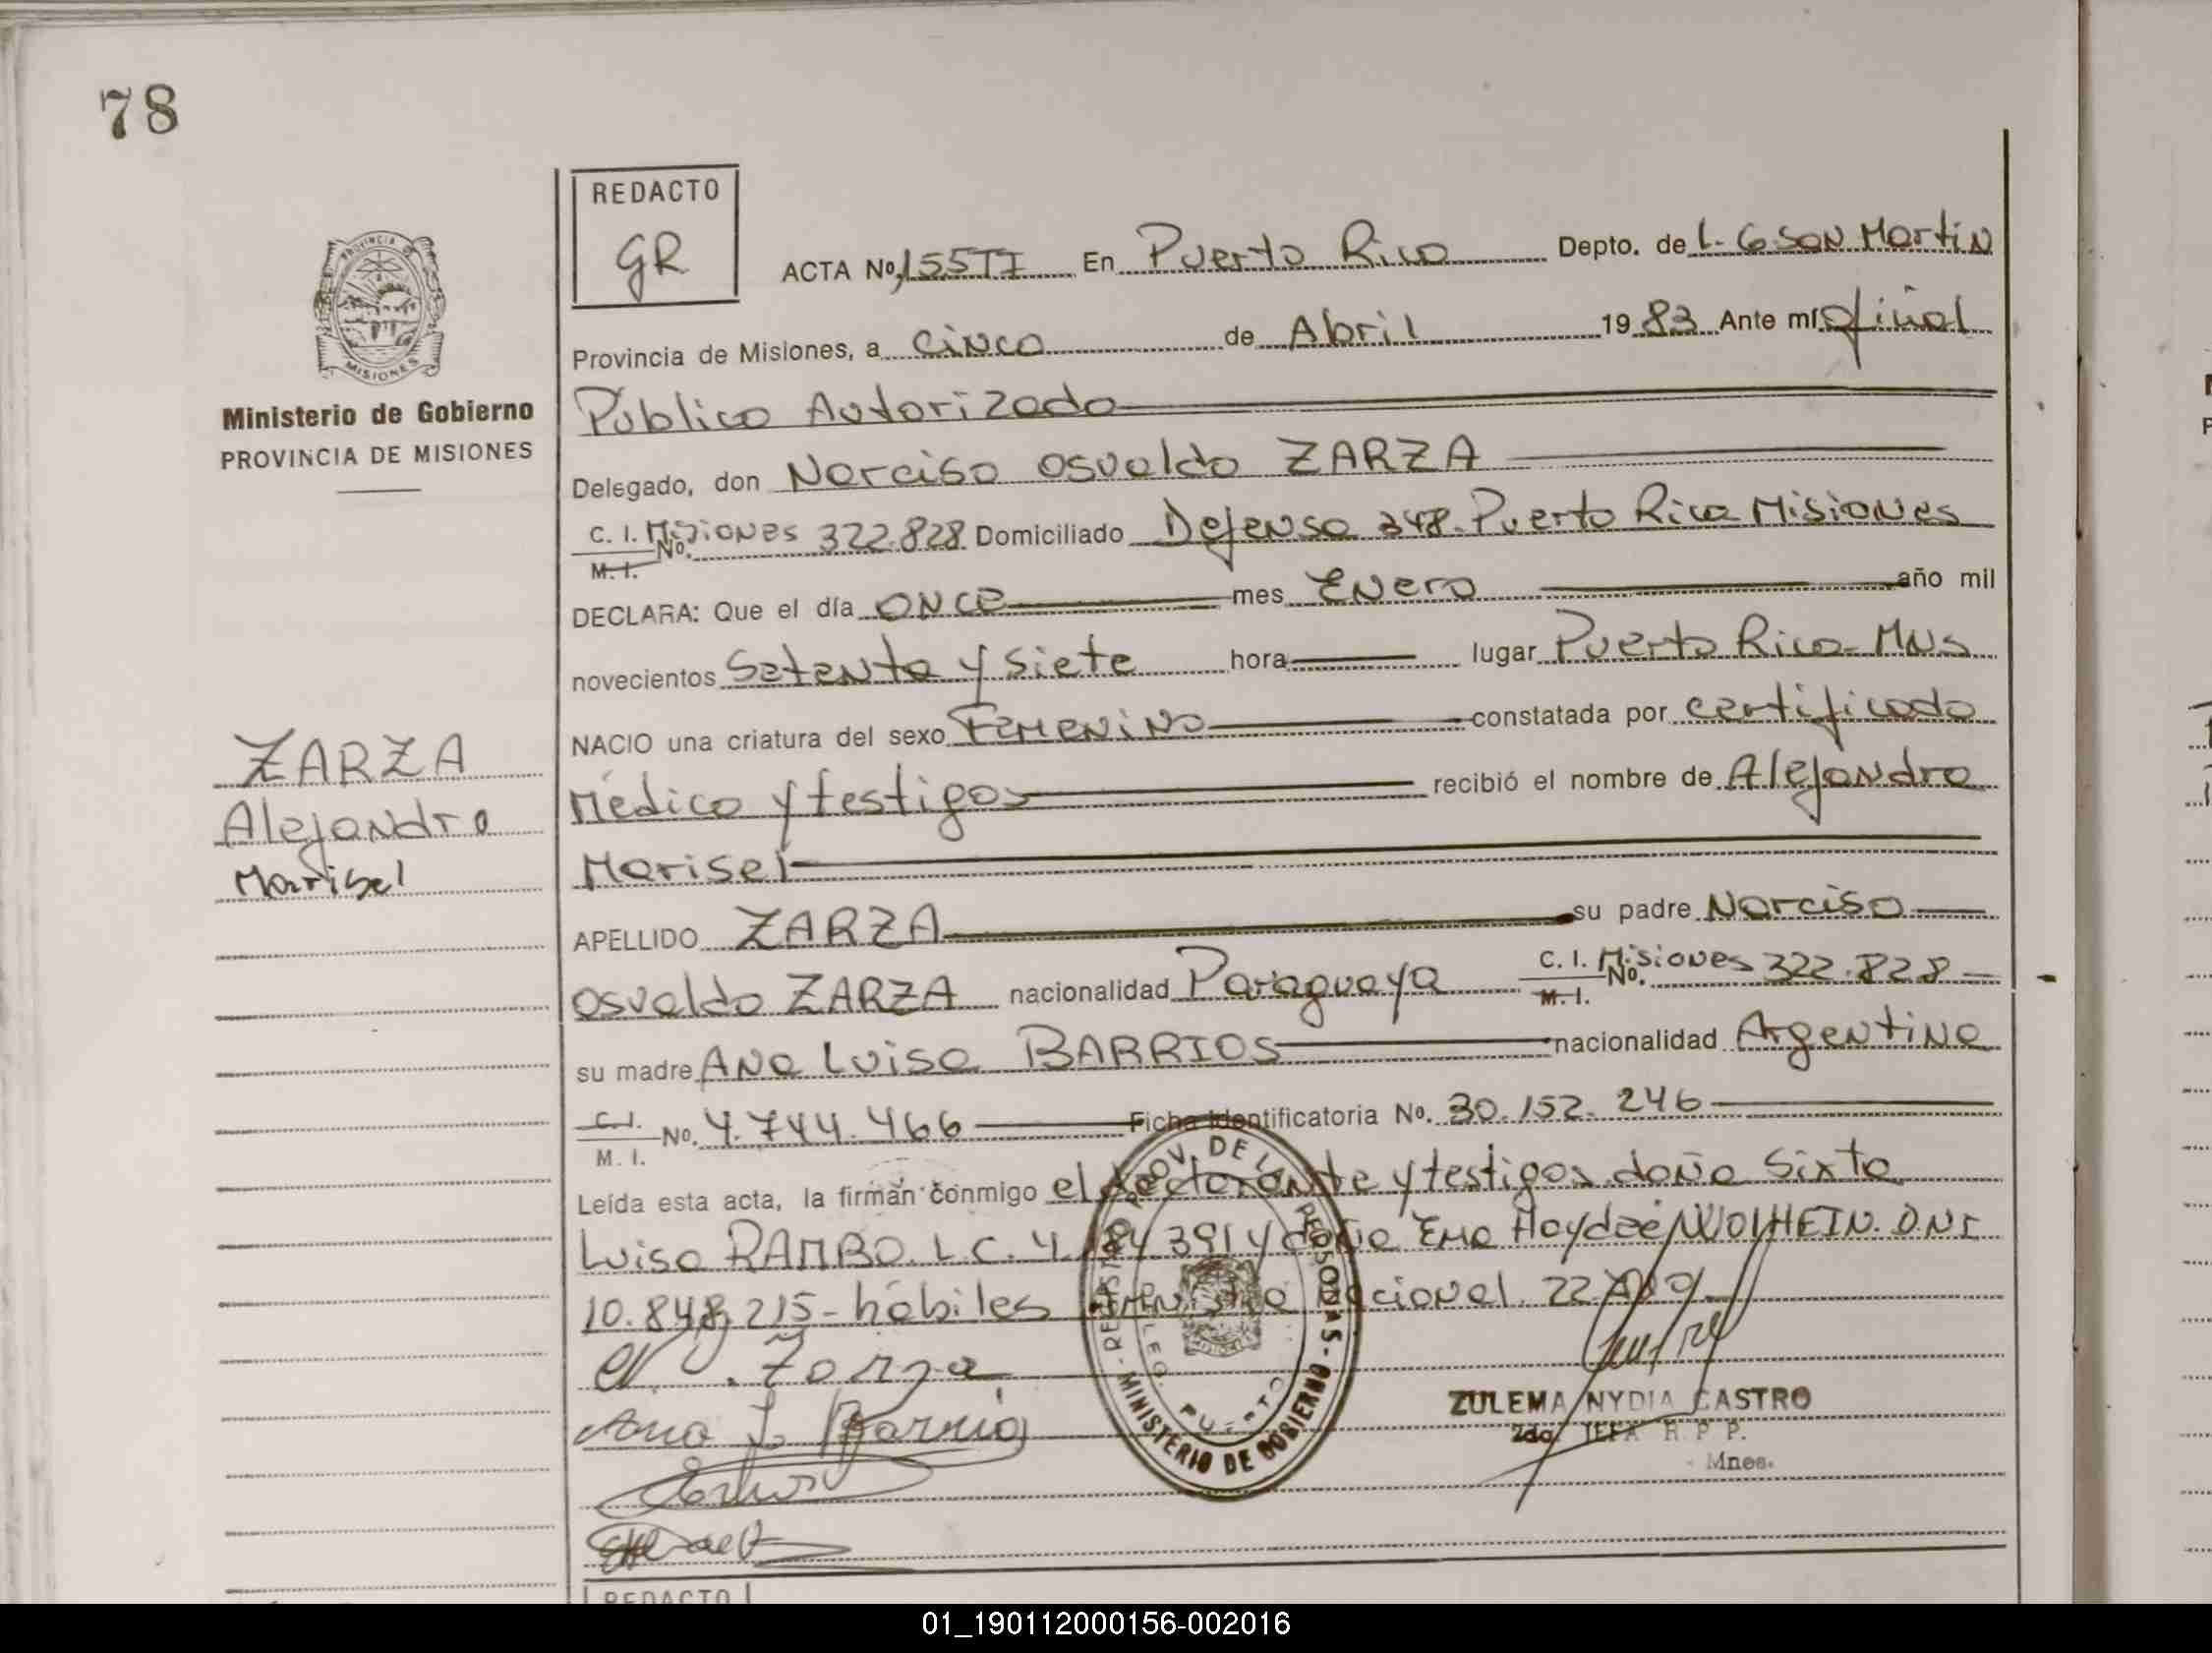 78
REDACTO
GR
ACTA Nº 155TI En Puerto Rico Depto. de L. G. San Martin
Provincia de Misiones, a cinco de Abril 1983 Ante mí Oficial
Público Autorizado
Delegado, don Narciso Osvaldo ZARZA
C. I. M. I. No. Misiones 322.828 Domiciliado Defensa 348. Puerto Rico Misiones
DECLARA: Que el día ONCE mes Enero año mil
novecientos Setenta y siete hora lugar Puerto Rico - Mns
NACIO una criatura del sexo Femenino constatada por certificado
Médico y testigos recibió el nombre de Alejandra
Marisel
APELLIDO ZARZA su padre Narciso
Osvaldo ZARZA nacionalidad Paraguaya C. I. M. I. No. Misiones 322.828
su madre Ana Luisa BARRIOS nacionalidad Argentina
C. I. M. I. No. 4.744.466 Ficha Identificatoria No. 30.152.246
Leída esta acta, la firman conmigo el declarante y testigos doña Sixta
Luisa RAMBO. L.C. 4. 391 y doña Ema Haydeé D.N.I
10.848.215 - hábiles
N. O. Zarza
Ana L. Barrios
ZULEMA NYDIA CASTRO
2da. JEFA R. P. P.
Mnes.
MINISTERIO DE GOBIERNO
Ministerio de Gobierno
PROVINCIA DE MISIONES
PROVINCIA DE
MISIONES
ZARZA
Alejandra
Marisel
REDACTO
01_190112000156-002016